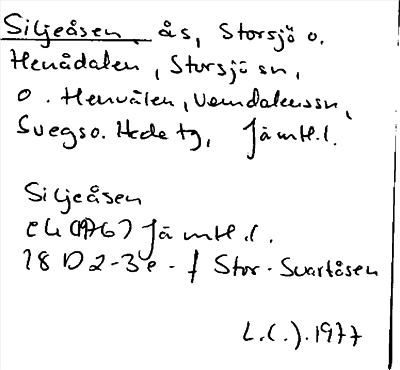 Siljeåsen ås, Storsjö o.
Henådalen, Storsjö sn,
o. Henvålen, Vemdalens sn,
Svegs o. Hede tg, Jämtl.l.
Siljeåsen
Ek (1976) Jämtl.l.
18 D 2-3 e-f Stor-Svartåsen
L.(.).1977